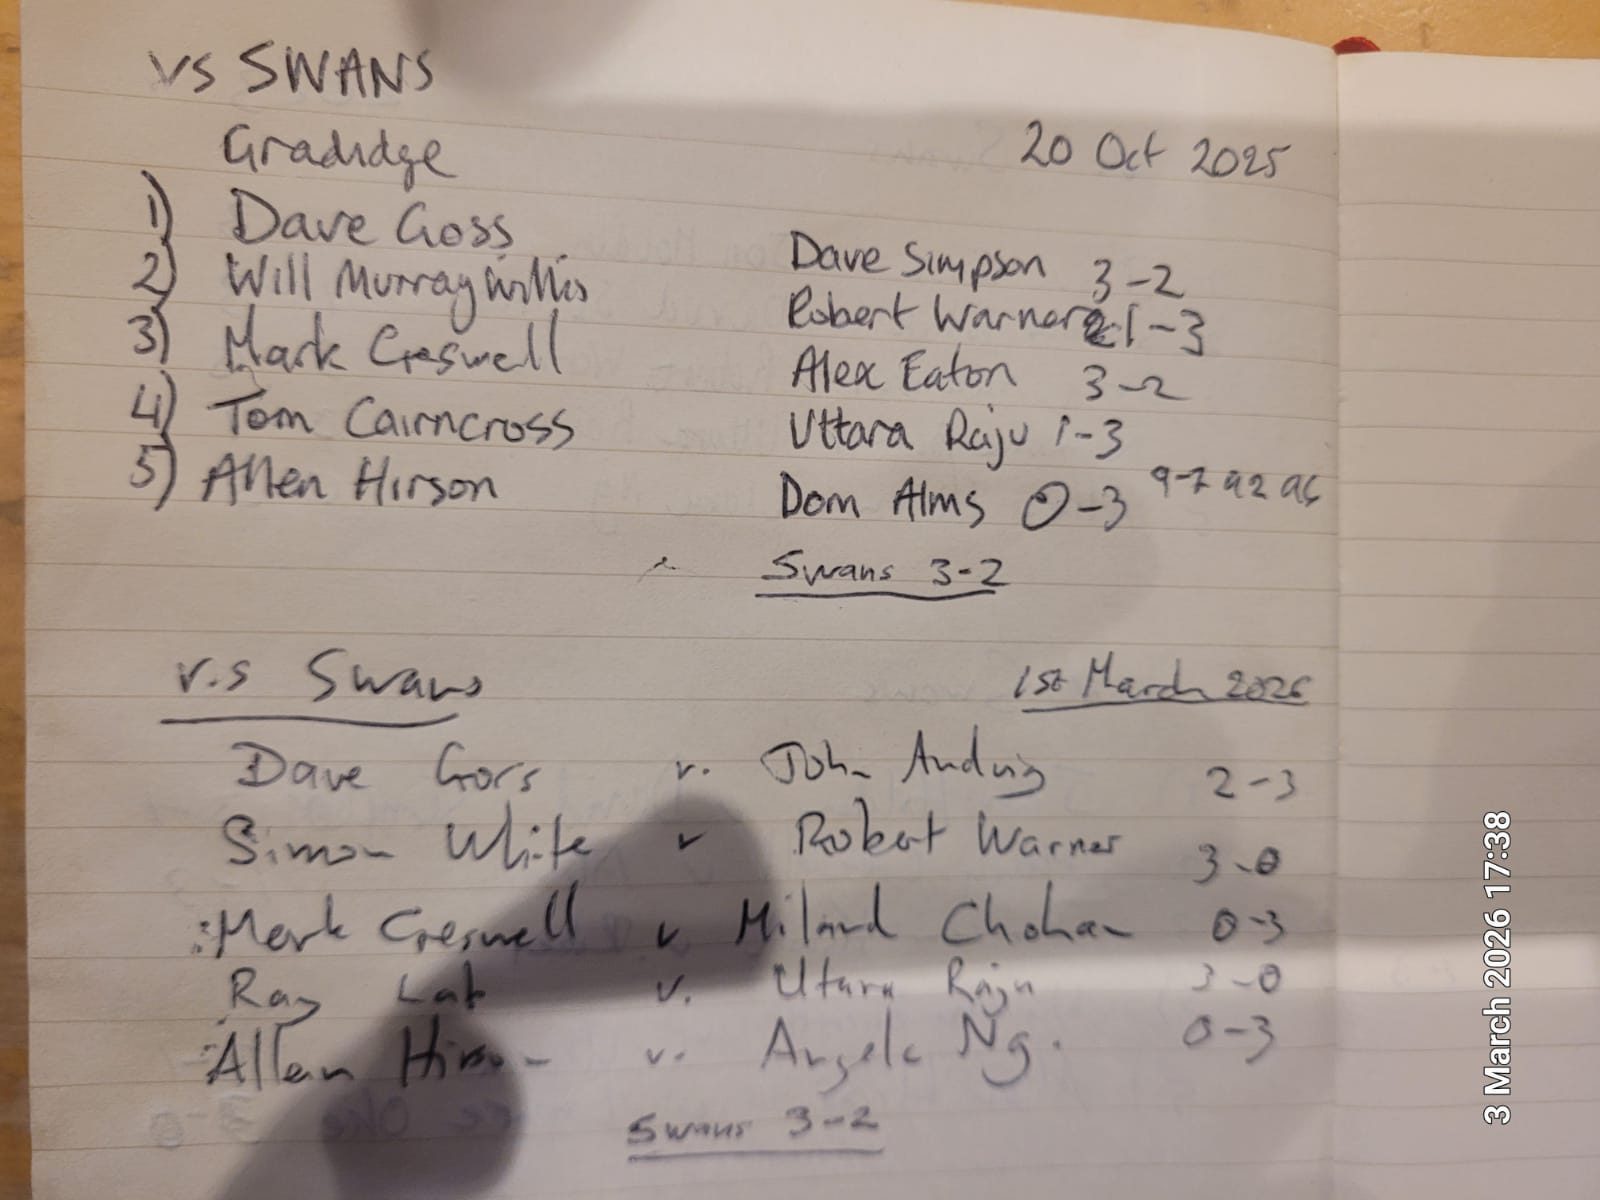 vs SWANS
Gradidge 20 Oct 2025
1) Dave Goss Dave Simpson 3-2
2) Will Murraywillis Robert Warner 1-3
3) Mark Creswell Alex Eaton 3-2
4) Tom Cairncross Uttara Raju 1-3
5) Allen Hirson Dom Alms 0-3 9-7 92 96
Swans 3-2
v.s Swans 1st March 2026
Dave Goss v. John 2-3
Simon White v Robert Warner 3-0
Mark Creswell v Miland Chohan 0-3
Ray v. Uttara Raju 3-0
Allan Hirson v. Angela Ng. 0-3
Swans 3-2
3 March 2026 17:38